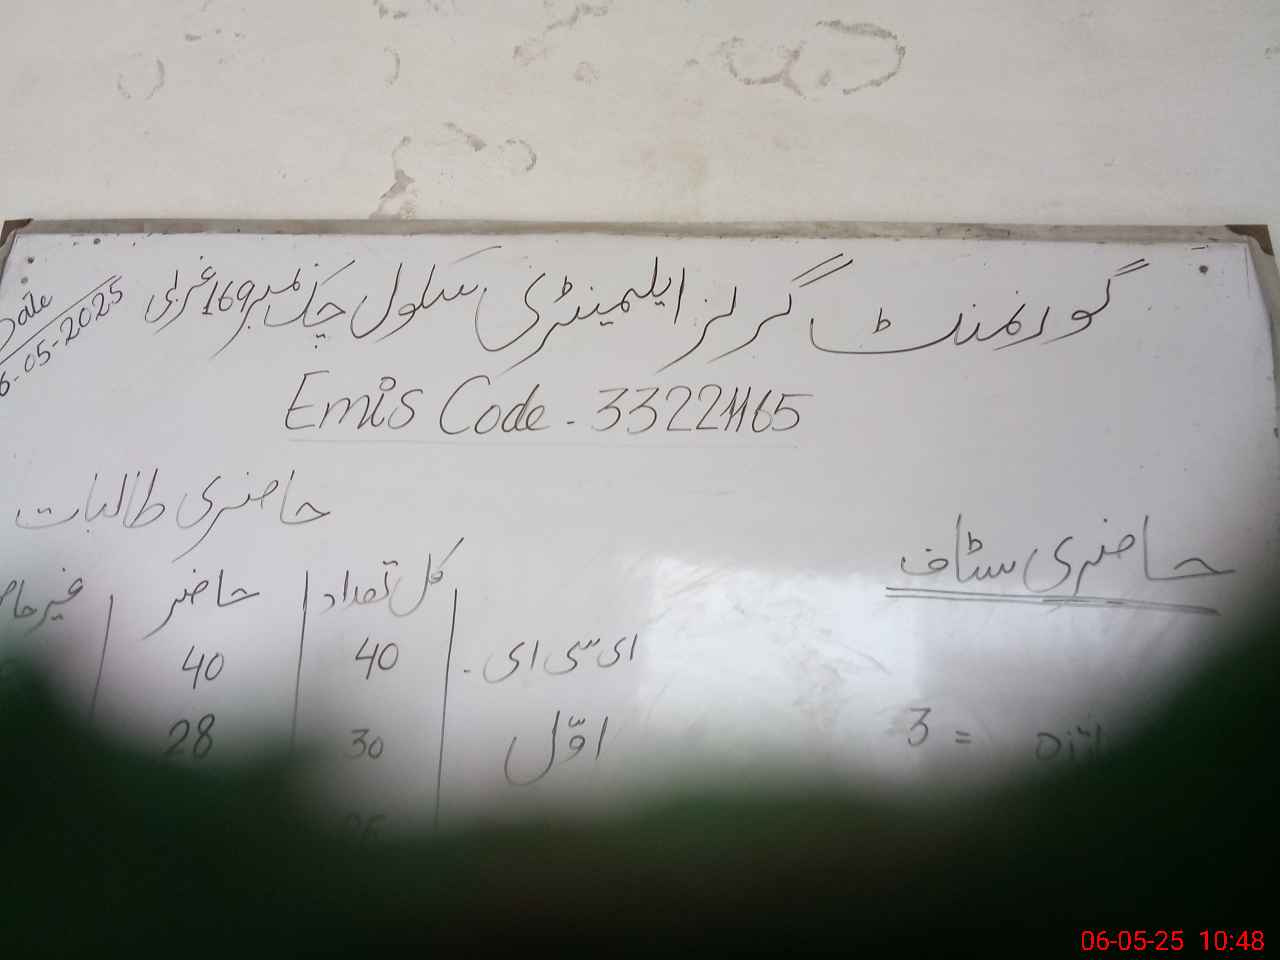 گورنمنٹ گرلز ایلیمینٹری سکول چک نمبر 169 غربی
Date
6-05-2025
Emis Code - 33221165
حاضری سٹاف
حاضری طالبات
کل تعداد | حاضر | غیر حاض
ای سی ای - 40 | 40
اوّل 30 | 28
26
= 3
06-05-25 10:48